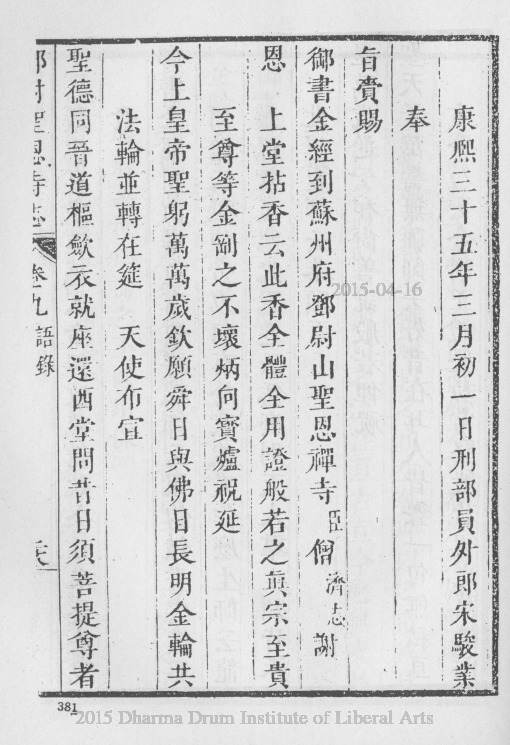 康熙三十五年三月初一日刑部員外郎宋駿業
奉
旨賫賜
御書金經到蘇州府鄧尉山聖恩禪寺臣僧濟志謝
恩　上堂拈香云此香全體全用證般若之眞宗至貴
至尊等金剛之不壞炳向寶爐祝延
今上皇帝聖躬萬萬歲欽願舜日與佛日長明金輪共
法輪並轉在筵　天使布宣
聖德同音道樞斂衣就座還西堂問昔日須菩提尊者
鄧尉聖恩寺志　卷九　語錄
381
2015-04-16
2015 Dharma Drum Institute of Liberal Arts